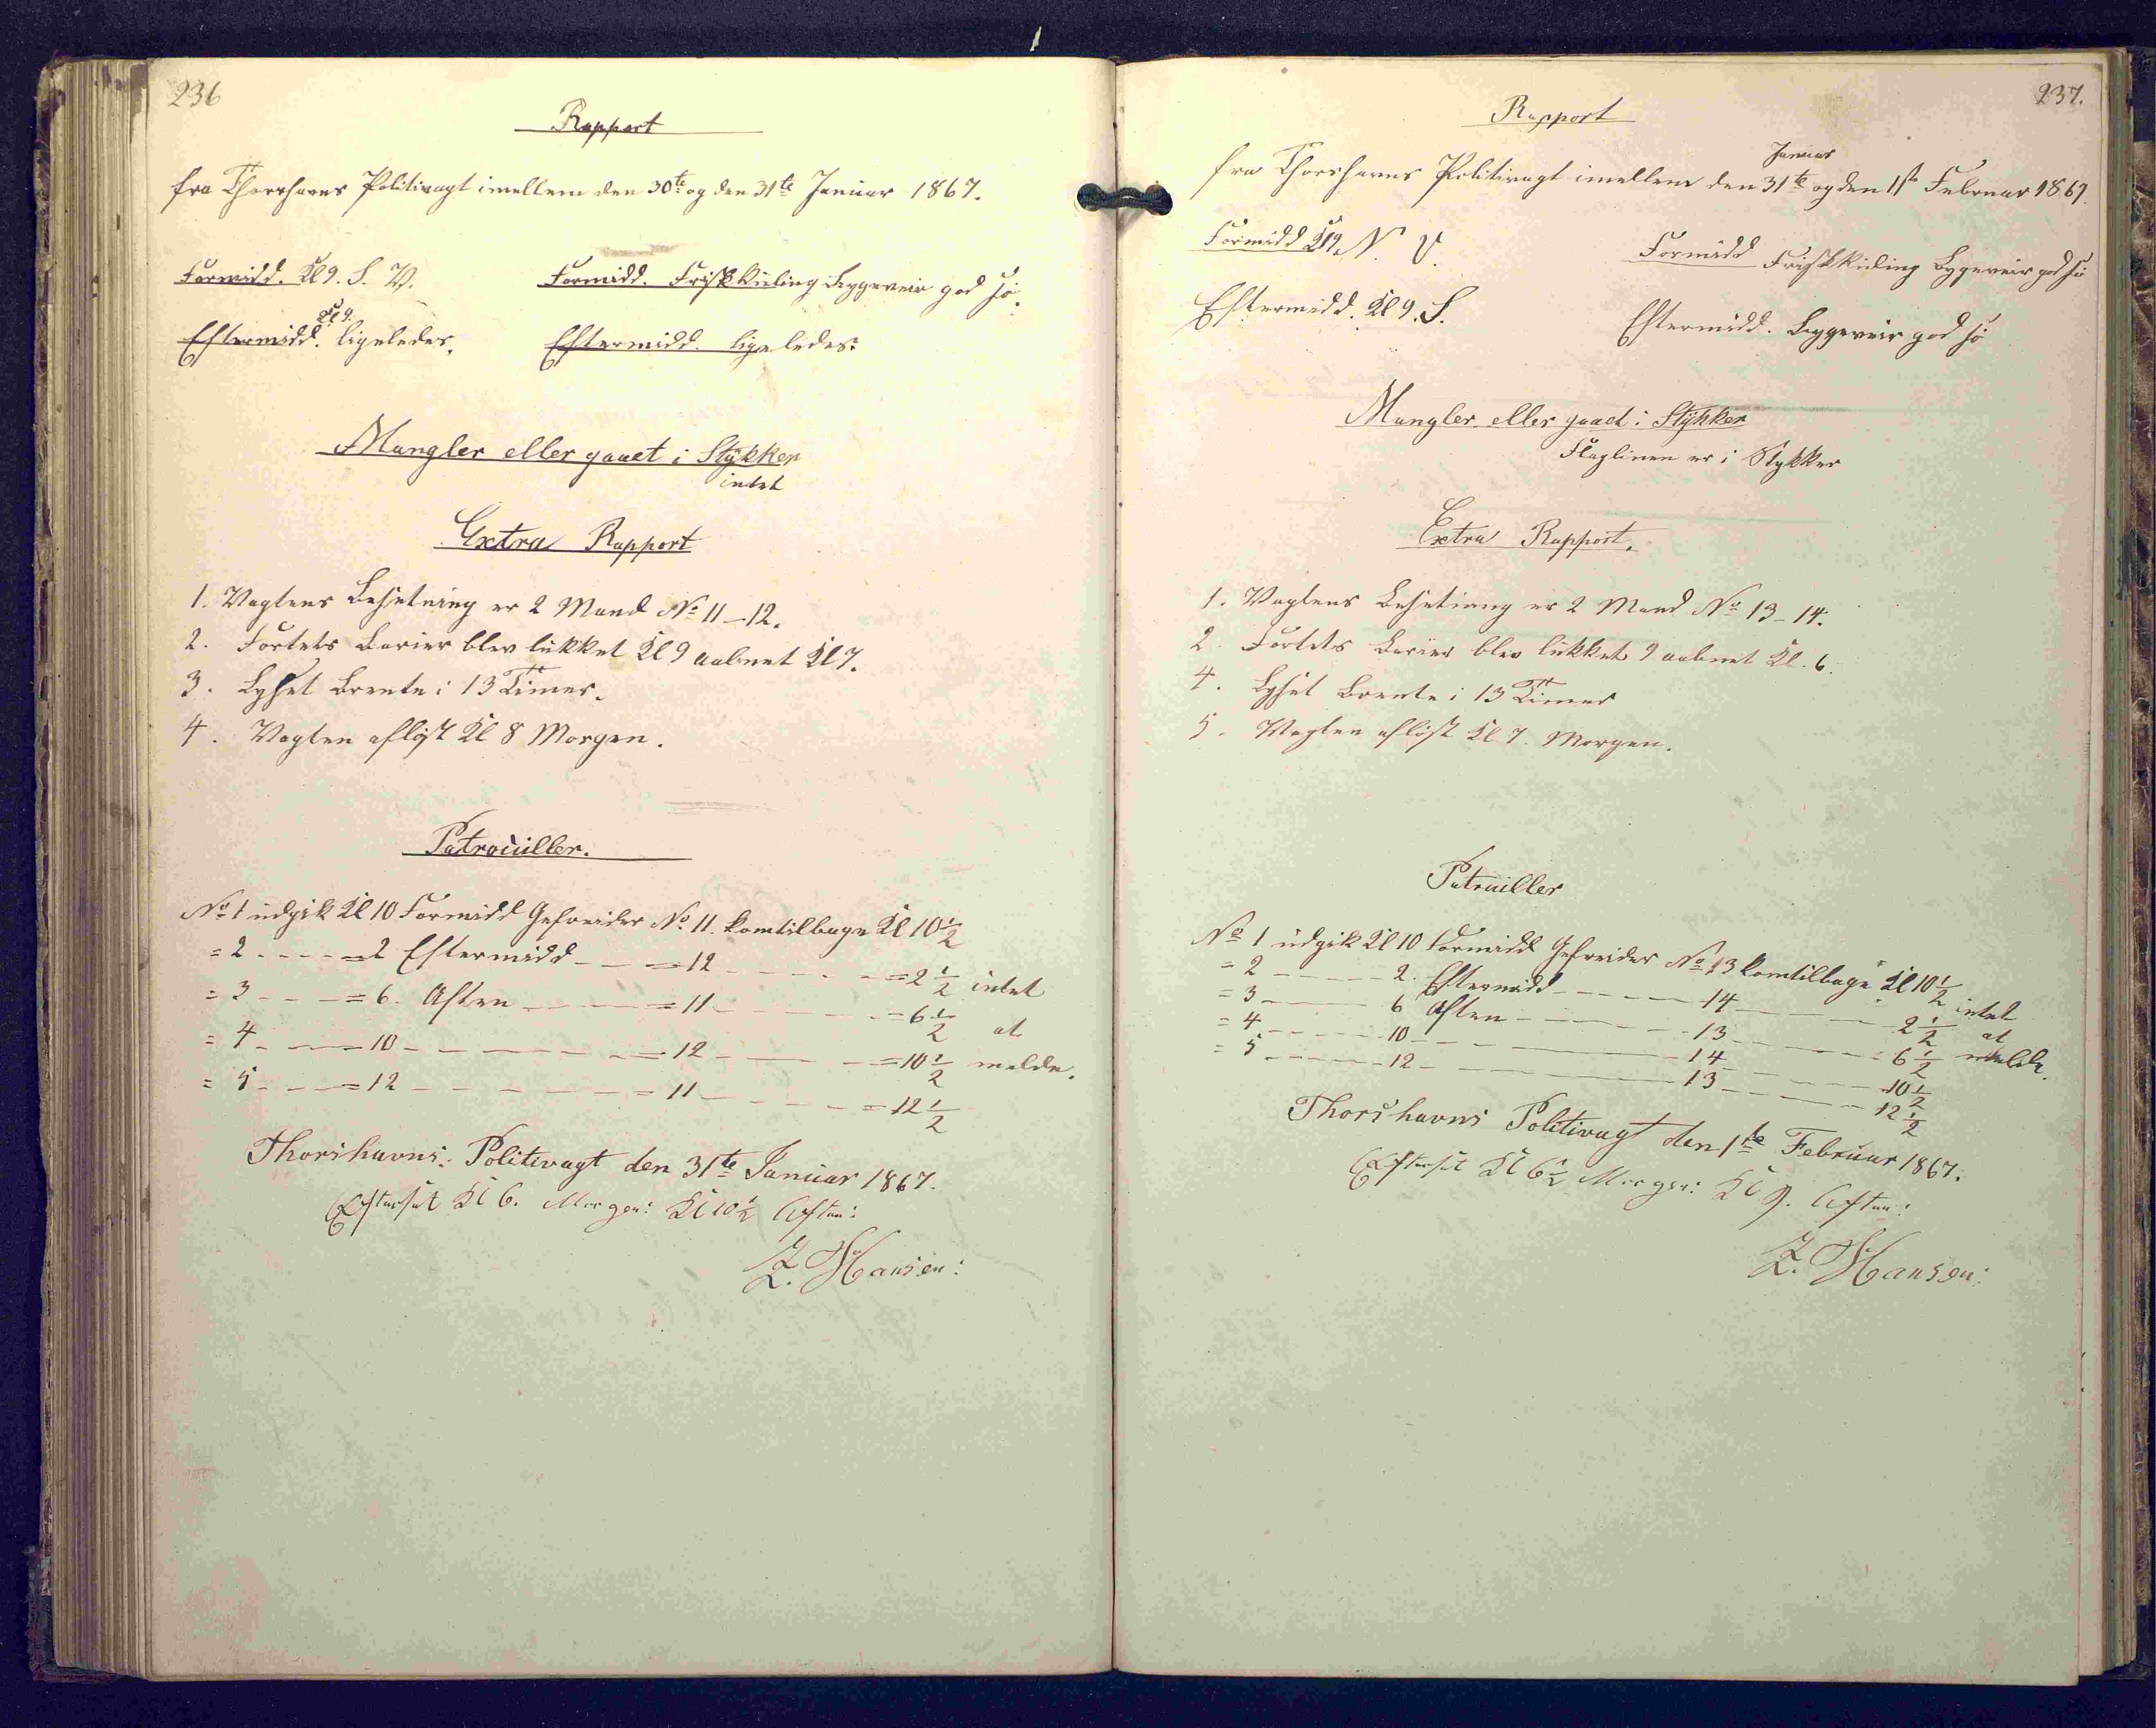 236
Rapport
fra Thorshavns Politivagt imellem den 30te og den 31te Januar 1867.
Formidd. Kl 9. S. V.
Formidd. Frisk Kuling Bygeveir god Sö.
Kl 9.
Eftermidd. ligeledes.
Eftermidd. ligeledes.
Mangler eller gaaet i Stÿkker
intet
Extra Rapport
1. Vagtens Besetning er 2 Mand No 11-12.
2. Fortets Barier blev lukket Kl 9 aabnet Kl 7.
3. Lyset brente i 13 Timer.
4. Vagten aflöst Kl 8 Morgen.
Patrouiller.
No 1 udgik Kl 10 Formidd Gefreider No 11. komtilbage Kl 10 1/2
= 2 - - - = 2 Eftermidd - - = 12 - - - = 2 1/2 intet
= 3 - - = 6. Aften - - = 11 - - - = 6 1/2 at
= 4 - - = 10 - - - = 12 - - - = 10 1/2 melde.
= 5 - - = 12 - - - = 11 - - - = 12 1/2
Thorshavns Politivagt den 31te Januar 1867.
Efterset Kl 6. Morgen: Kl 10 1/2 Aften:
Z. Hansen:
237.
Rapport
Januar
fra Thorshavns Politivagt imellem den 31te og den 1ste Februar 1867
Formidd Kl 9. N. V.
Formidd Frisk Kuling Bygeveir god Sö
Eftermidd. Kl 9. S.
Eftermidd. Byggeveir god Sö
Mangler eller gaaet i Stÿkker
Flaglinen er i Stykker
Extra Rapport.
1. Vagtens Besetning er 2 Mand No 13-14.
2. Fortets Barier blev lukket 9 aabnet Kl. 6.
4. Lyset brente i 13 Timer
5. Vagten aflöst Kl 7. Morgen.
Patruiller
No 1 udgik Kl 10 Formidd Gefreider No 13 komtilbage Kl 10 1/2
= 2 - - - 2. Eftermidd - - - 14 - - - 2 1/2 intet
= 3 - - - 6 Aften - - - 13 - - - 6 1/2 at
= 4 - - - 10 - - - 14 - - - 10 1/2 melde.
= 5 - - - 12 - - - 13 - - - 12 1/2
Thorshavns Politivagt den 1te Februar 1867.
Efterset Kl 6 1/2 Morgen: Kl 9. Aften:
Z. Hansen: